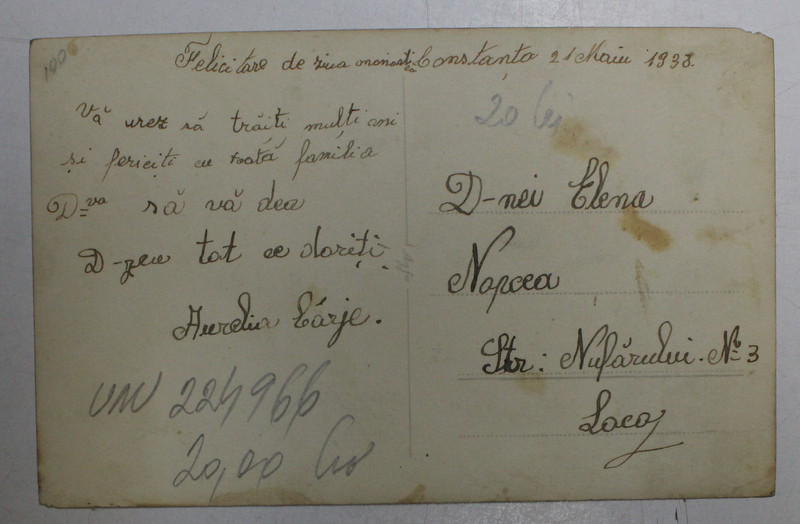 100
Felicitare de ziua onomastică Constanța 21 Maiu 1938.
Vă urez să trăiti multi ani
și fericiți cu toată familia
D-va să vă dea
D-zeu tot ce doriți.
Aurelia Cârje.
UW 224966
20,00 lei
20 lei
D-nei Elena
Napcea
Str: Nufărului. No 3
Loco